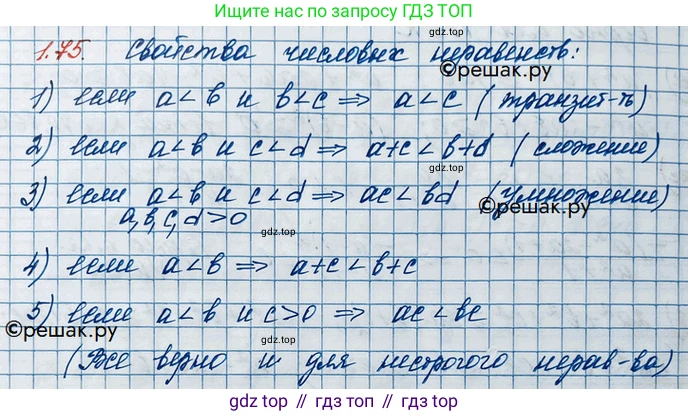 Ищите нас по запросу ГДЗ ТОП
1.75. Свойства числовых неравенств:
©решак.ру
1) если a<b и b<c ⇒ a<c (транзит-ть)
2) если a<b и c<d ⇒ a+c<b+d (сложение)
3) если a<b и c<d ⇒ ac<bd (умножение)
a,b,c,d>0
©решак.ру
gdz.top
gdz.top
4) если a<b ⇒ a+c<b+c
gdz.top
5) если a<b и c>0 ⇒ ac<bc
©решак.ру
gdz.top
(Все верно и для нестрогого нерав-ва)
gdz top // гдз топ // gdz.top